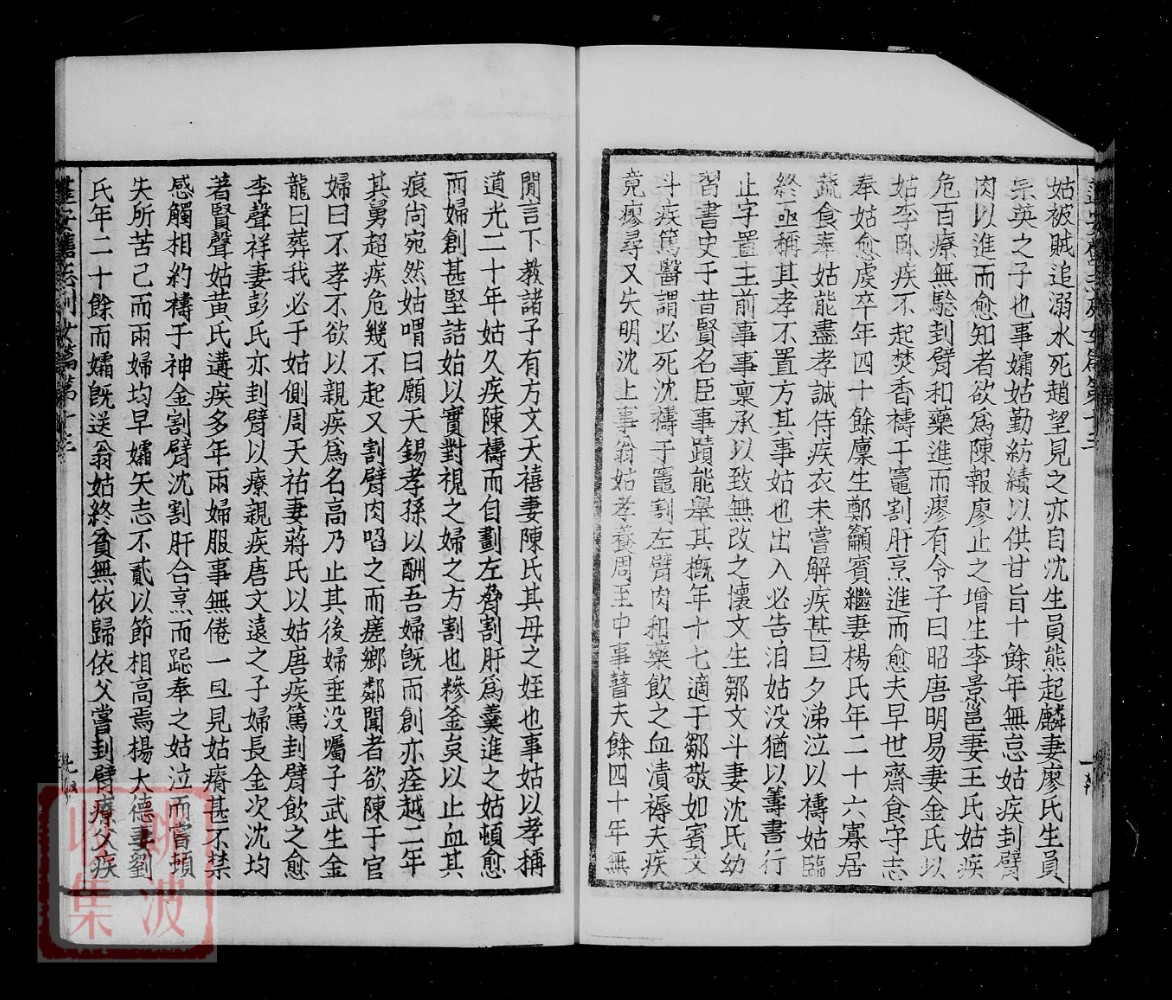 姑被賊追溺水死趙望見之亦自沈生員熊起麟妻廖氏生員
宗英之子也事孀姑勤紡績以供甘旨十餘年無怠姑疾封臂
肉以進而愈知者欲爲陳報廖止之增生李景邕妻王氏姑疾
危百療無騐封臂和藥進而廖有令子曰昭唐明易妻金氏以
姑李臥疾不起焚香禱于竈割肝烹進而愈夫早世齋食守志
奉姑愈虔卒年四十餘廩生鄭籲賓繼妻楊氏年二十六寡居
蔬食奉姑能盡孝誠侍疾衣未嘗解疾甚旦夕涕泣以禱姑臨
終亟稱其孝不置方其事姑也出入必告洎姑没猶以籌書行
止字置主前事事稟承以致無改之懷文生鄒文斗妻沈氏幼
習書史于昔賢名臣事蹟能舉其概年十七適于鄒敬如賓文
斗疾篤醫謂必死沈禱于竈割左臂肉和藥飲之血漬褥夫疾
竟廖尋又失明沈上事翁姑孝養周至中事瞽夫餘四十年無
閒言下教諸子有方文天禧妻陳氏其母之姪也事姑以孝稱
道光二十年姑久疾陳禱而自劃左脅割肝爲羹進之姑頓愈
而婦創甚堅詰姑以實對視之婦之方割也糝釜炱以止血其
痕尚宛然姑喟曰願天錫孝孫以酬吾婦旣而創亦痊越二年
其舅超疾危幾不起又割臂肉啗之而瘥鄉鄰聞者欲陳于官
婦曰不孝不欲以親疾爲名高乃止其後婦垂没囑子武生金
龍曰葬我必于姑側周天祐妻蔣氏以姑唐疾篤封臂飲之愈
李聲祥妻彭氏亦封臂以療親疾唐文遠之子婦長金次沈均
著賢聲姑黄氏遘疾多年兩婦服事無倦一日見姑瘠甚不禁
感觸相約禱于神金割臂沈割肝合烹而跽奉之姑泣而嘗頓
失所苦已而兩婦均早孀矢志不貳以節相高焉楊大德妻劉
氏年二十餘而孀旣送翁姑終貧無依歸依父嘗封臂療父疾
姚波
收集